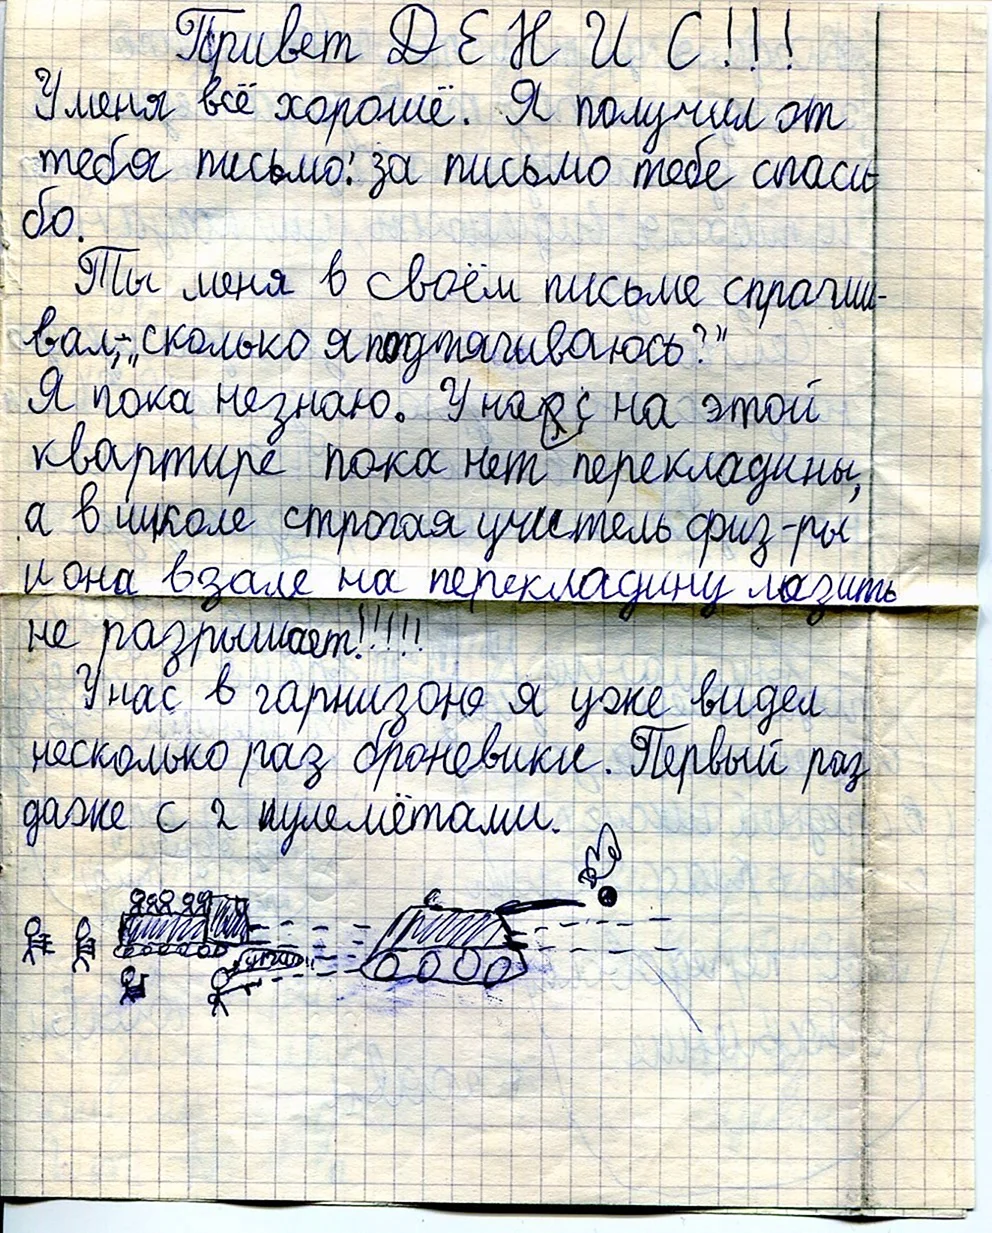 Привет Д Е Н И С!!!
У меня всё хорошё. Я получил от
тебя письмо: за письмо тебе спаси-
бо.
Ты меня в своём письме спрачши-
вал,-„сколько я подтягиваюсь?"
Я пока незнаю. У нас на этой
квартире пока нет перекладины,
а в школе строгая учитель физ-ры
и она в зале на перекладину лазить
не разрышает!!!!!
У нас в гарнизоне я уже видел
несколько раз броневики. Первый раз
даже с 2 пулемётами.